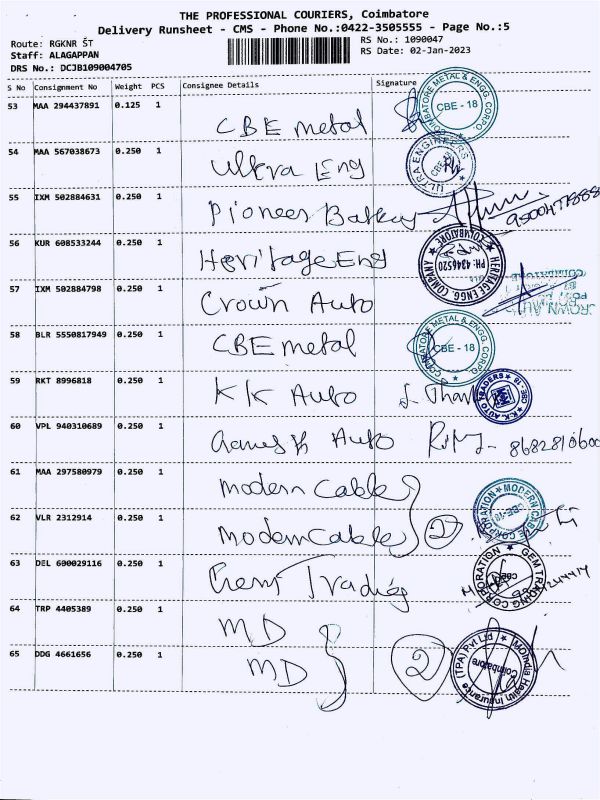 THE PROFESSIONAL COURIERS, Coimbatore
Delivery Runsheet - CMS - Phone No.:0422-3505555 - Page No.:5
Route: RGKNR ŠT
RS No.: 1090047
Staff: ALAGAPPAN
RS Date: 02-Jan-2023
DRS No.: DCJB109004705
S No Consignment No Weight PCS Consignee Details Signature
53 MAA 294437891 0.125 1 CBE metal
COIMBATORE METAL & ENGG. CORPO. CBE - 18
54 MAA 567038673 0.250 1 Ultra Eng
ULTRA ENGINEERS
55 IXM 502884631 0.250 1 Pioneer Battery
56 KUR 608533244 0.250 1 Heritage Eng
HERITAGE ENGG. COMPANY COIMBATORE PH: 4346520
57 IXM 502884798 0.250 1 Crown Auto
58 BLR 5550817949 0.250 1 CBE metal
COIMBATORE METAL & ENGG. CORPO CBE - 18
59 RKT 8996818 0.250 1 KK Auto
K.K. AUTO TRADERS CBE-18
60 VPL 940310689 0.250 1 Ganesh Auto
61 MAA 297580979 0.250 1 modern cable
MODERN CABLE CORPORATION CBE-18
62 VLR 2312914 0.250 1 modern cable 2
63 DEL 600029116 0.250 1 Gem Trading
GEM TRADING CORPORATION
64 TRP 4405389 0.250 1 MD
65 DDG 4661656 0.250 1 MD 2
MDIndia Health Insurance (TPA) Pvt Ltd Coimbatore